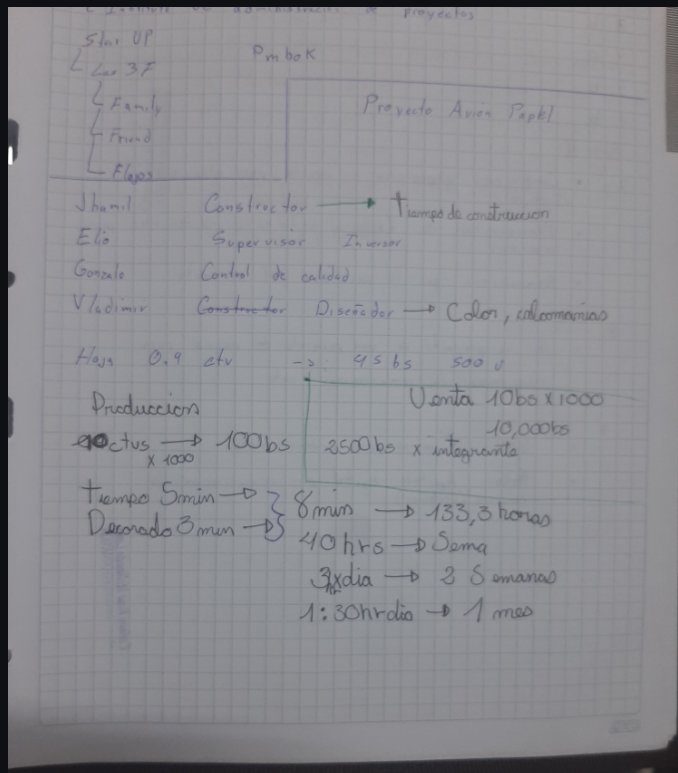 Instituto de administración de Proyectos
Star UP
Pmbok
Las 3F
Family
Friend
Proyecto Avión Papel
Jhamil Constructor → Tiempo de construccion
Elio Supervisor Inversor
Gonzalo Control de calidad
Vladimir Constructor Diseñador → Color, calcomanias
Hoja 0.9 ctv → 45 bs 500 u
Produccion
Venta 10bs x 1000
10,000bs
10ctvs → 100bs
x 1000
2500bs x integrante
tiempo 5min →
Decorado 3 min →
8 min → 133,3 horas
40hrs → Sema
3hr x dia → 2 Semanas
1:30hr dia → 1 mes